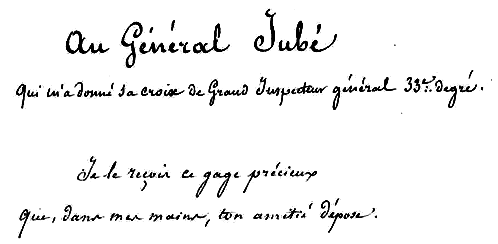 Au Général Jubé
Qui m'a donné sa croix de Grand Inspecteur général 33e. degré.
Je le reçois ce gage précieux
Que, dans mes mains, ton amitié dépose.